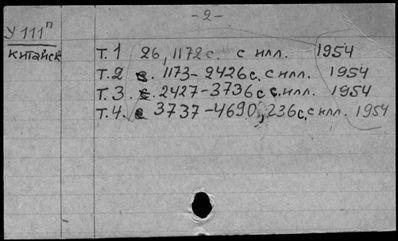 -2-
У 111п
китайск
Т.1 26, 1172с. с илл. 1954
Т.2 с. 1173-2426с. с илл. 1954
Т.3. с. 2427-3736с с.илл. 1954
Т.4. с 3737-4690, 236с, с илл. 1954